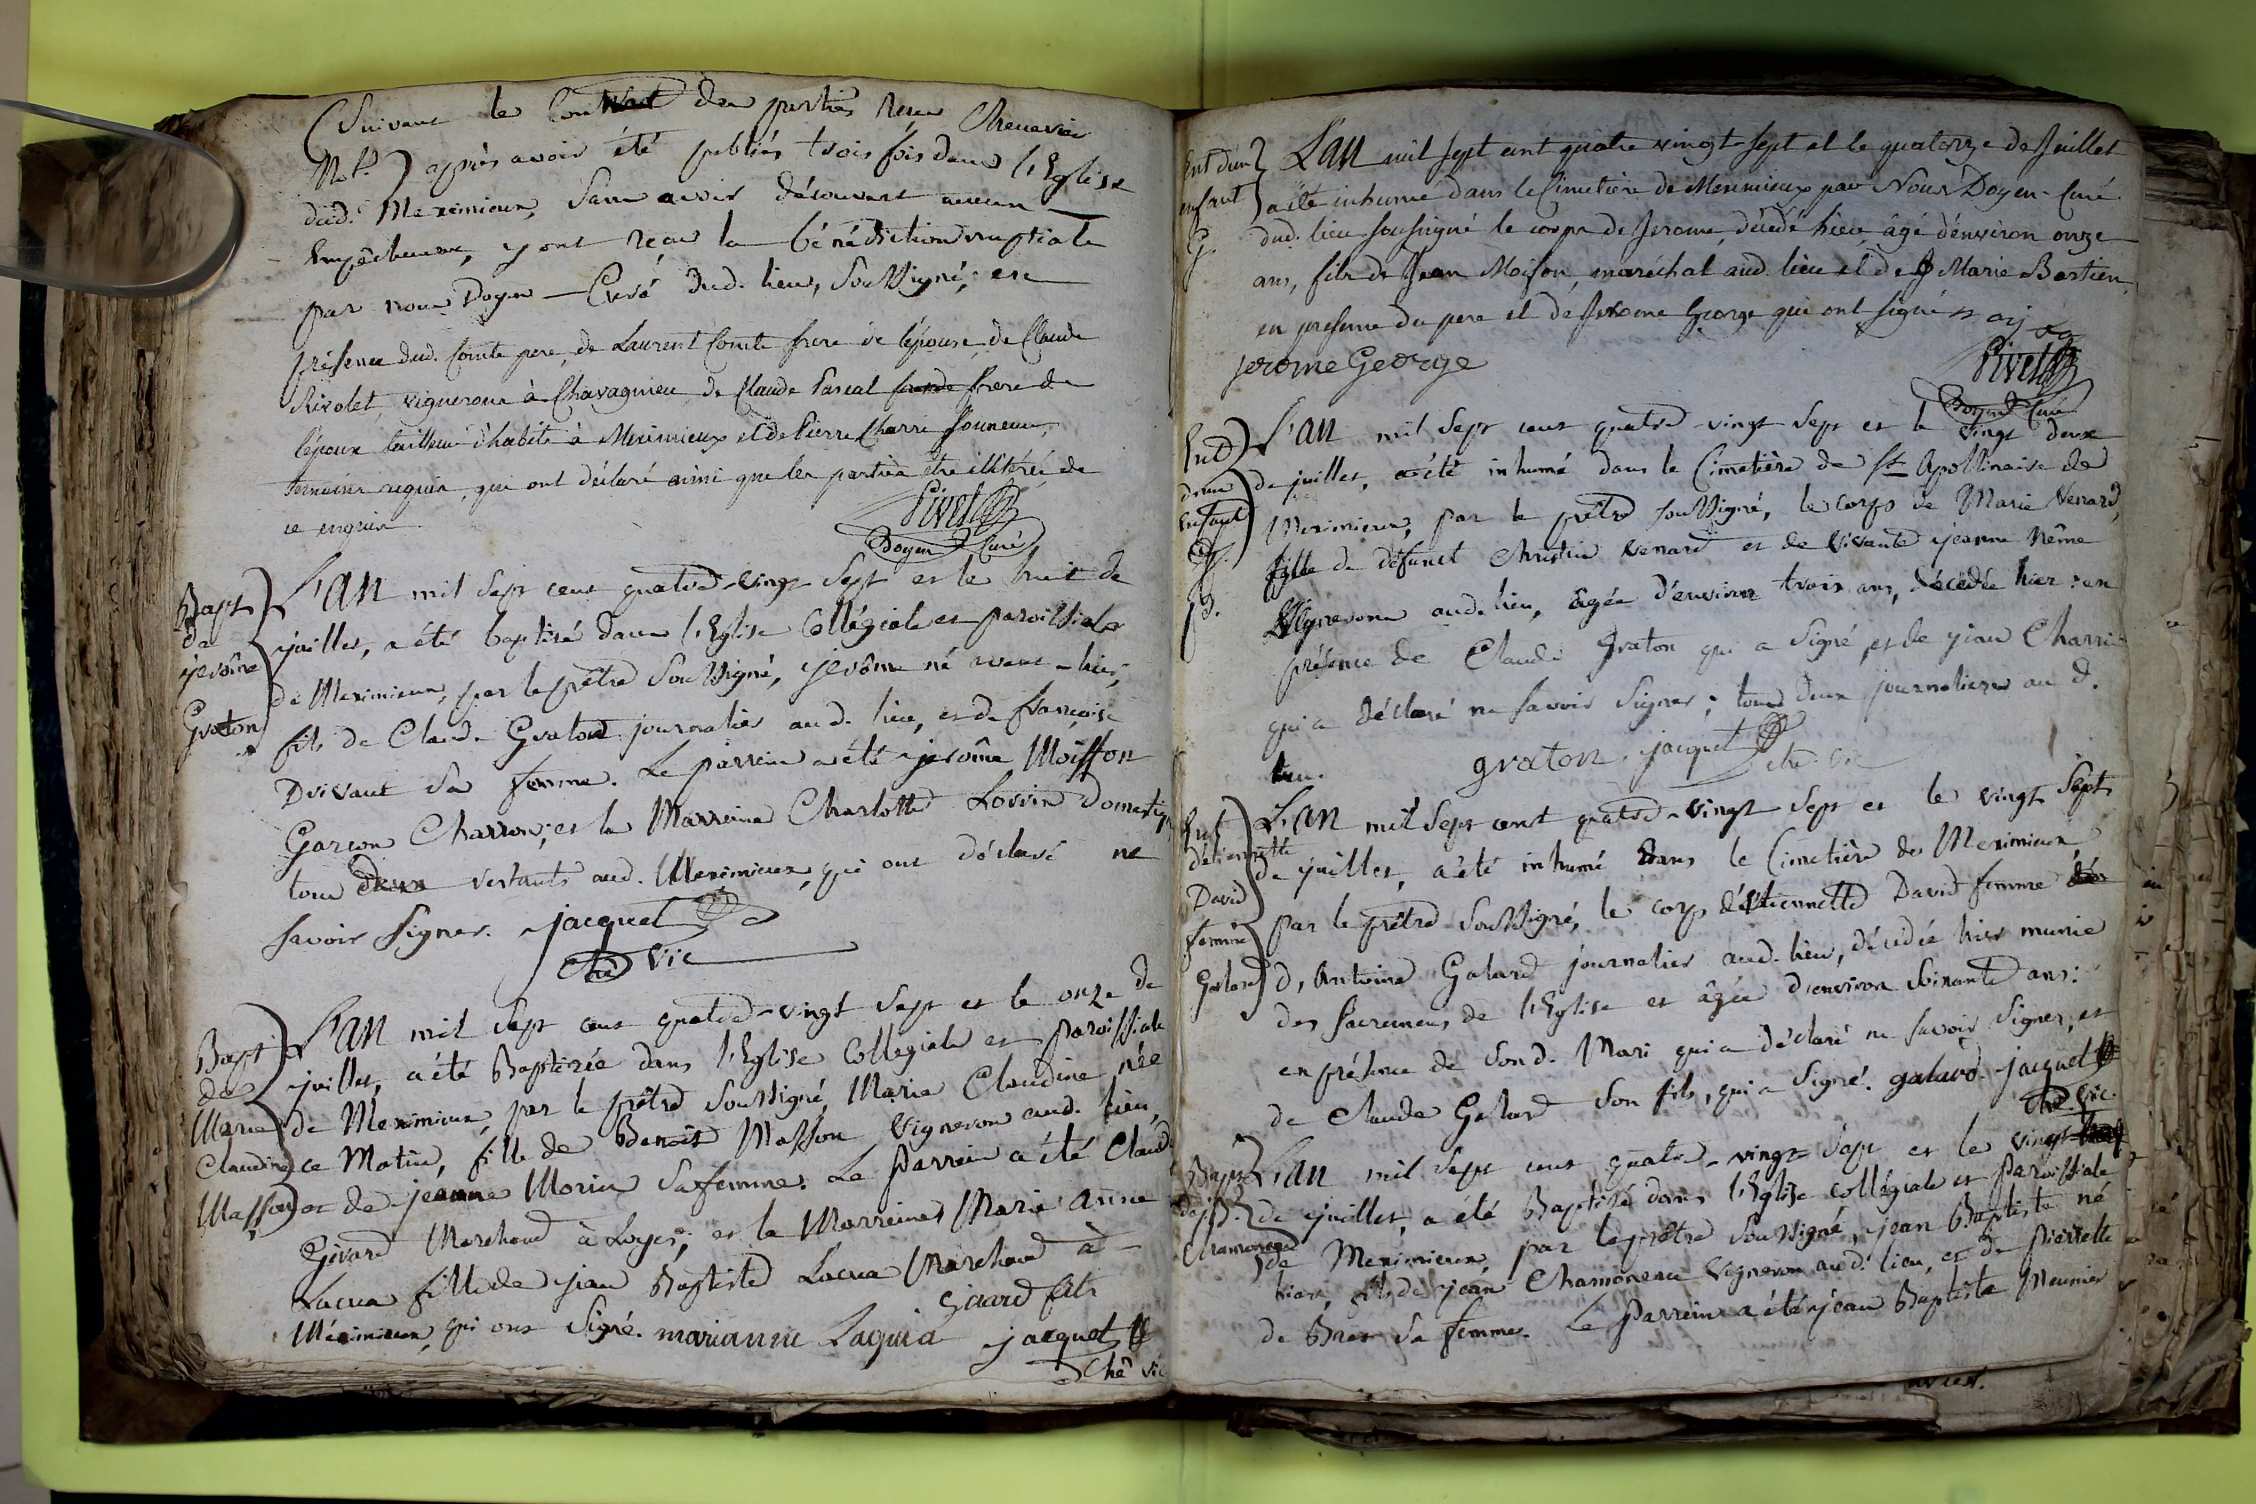 Suivant le Contrat des parties reçu Chenevier
Not.re) après avoir été publiés trois fois dans l'Eglise
dud. Meximieux, Sans avoir découvert aucun
Empêchement, y ont reçu la bénédiction nuptiale
par nous Doyen - Curé dud. lieu, Soussigné; en
présence dud. Comte pere, de Laurent Comte frere de l'épouse, de Claude
Rivolet, vigneron à Chavagnieu de Claude Pascal frere de
l'époux tailleur d'habits à Meximieux et de Pierre Charri
temoins requis, qui ont déclaré ainsi que les parties être illitérés de
ce enquis
Pivet
Doyen Curé
Bapt.
de
jerôme
Graton
L'an mil Sept cent quatre-vingt Sept et le huit de
juillet, a été baptisé dans l'Eglise Collégiale et paroissiale
de Meximieux, par le prêtre Soussigné, jerôme né avant-hier,
fils de Claude Graton journalier aud. lieu, et de françoise
Drivaut Sa femme. Le parrein a été jerôme Moisson
Garcon Charron, et la Marreine Charlotte Lovrin Domestique
tous deux restants aud. Meximieux, qui ont déclaré ne
Savoir Signer. jacquet
che Vic
Bapt.
de
Marie
Claudine
Masson
L'an mil Sept cent quatre-vingt Sept et le onze de
juillet, a été Baptisée dans l'Eglise Collégiale et paroissiale
de Meximieux, par le prêtre Soussigné, Marie Claudine née
ce Matin, fille de Benoit Masson Vigneron aud. lieu,
et de jeanne Morin Sa femme. Le Parrein a été Claude
Girard Marchand à Loyes; et la Marreine Marie Anne
Lacua fille de jean Baptiste Lacua Marchand à
Méximieux, qui ont Signé. marianne Laquia Girard fils jacquet
Che vic
Ent. d'un
enfant
G.
L'an mil sept cent quatre vingt-sept et le quatorze de Juillet
a été inhumé dans le Cimetière de Meximieux par Nous Doyen-Curé
dud. lieu soussigné le corps de Jerome, décédé hier, âgé d'environ onze
ans, fils de Jean Moison, maréchal aud. lieu et de Marie Bastien,
en presence du pere et de Jerome George qui ont signé
jerome George
Pivet
Doyen Curé
Ent.
d'une
Enfant
G.
L'an mil Sept cent quatre-vingt Sept et le vingt deux
de juillet, a été inhumé dans le Cimetière de St Apollinaire de
Meximieux, par le prêtre Soussigné, le corps de Marie Venard,
fille de défunct Christin Venard et de vivante jeanne Nême
Vigneronne aud. lieu, âgée d'environ trois ans, décédée hier: en
présence de Claude Graton qui a Signé, et de jean Charri
qui a déclaré ne Savoir Signer; tous deux journaliers aud.
lieu. graton. jacquet
che. Vic
Ent.
d'etiennette
David
femme
Galard
L'an mil Sept cent quatre-vingt Sept et le vingt Sept
de juillet, a été inhumé dans le Cimetière de Meximieux
par le prêtre Soussigné, le corps d'étiennette David femme
d'Antoine Galard journalier aud. lieu, décédée hier munie
des Sacremens de l'Eglise et âgée d'environ Soixante ans:
en présence de Sond. Mari qui a déclaré ne Savoir Signer, et
de Claude Galard Son fils, qui a Signé. galard. jacquet
che. Vic.
Bapt.
de j. B.
Chamoneau
L'an mil Sept cent quatre-vingt Sept et le vingt
de juillet, a été Baptisé dans l'Eglise collégiale et Paroissiale
de Meximieux, par le prêtre Soussigné, jean Baptiste né
hier, fils de jean Chamoneau Vigneron aud. lieu, et de Pierrette
de Bres Sa femme. Le Parrein a été jean Baptiste Meunier